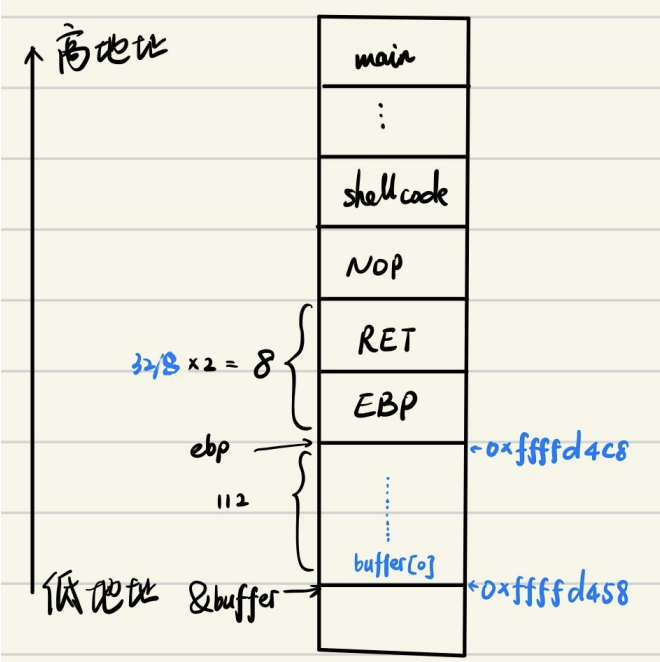 高地址
main
⋮
shellcode
NOP
RET
32/8 × 2 = 8
EBP
ebp
←0xffffd4c8
112
buffer[0]
低地址
&buffer
←0xffffd458